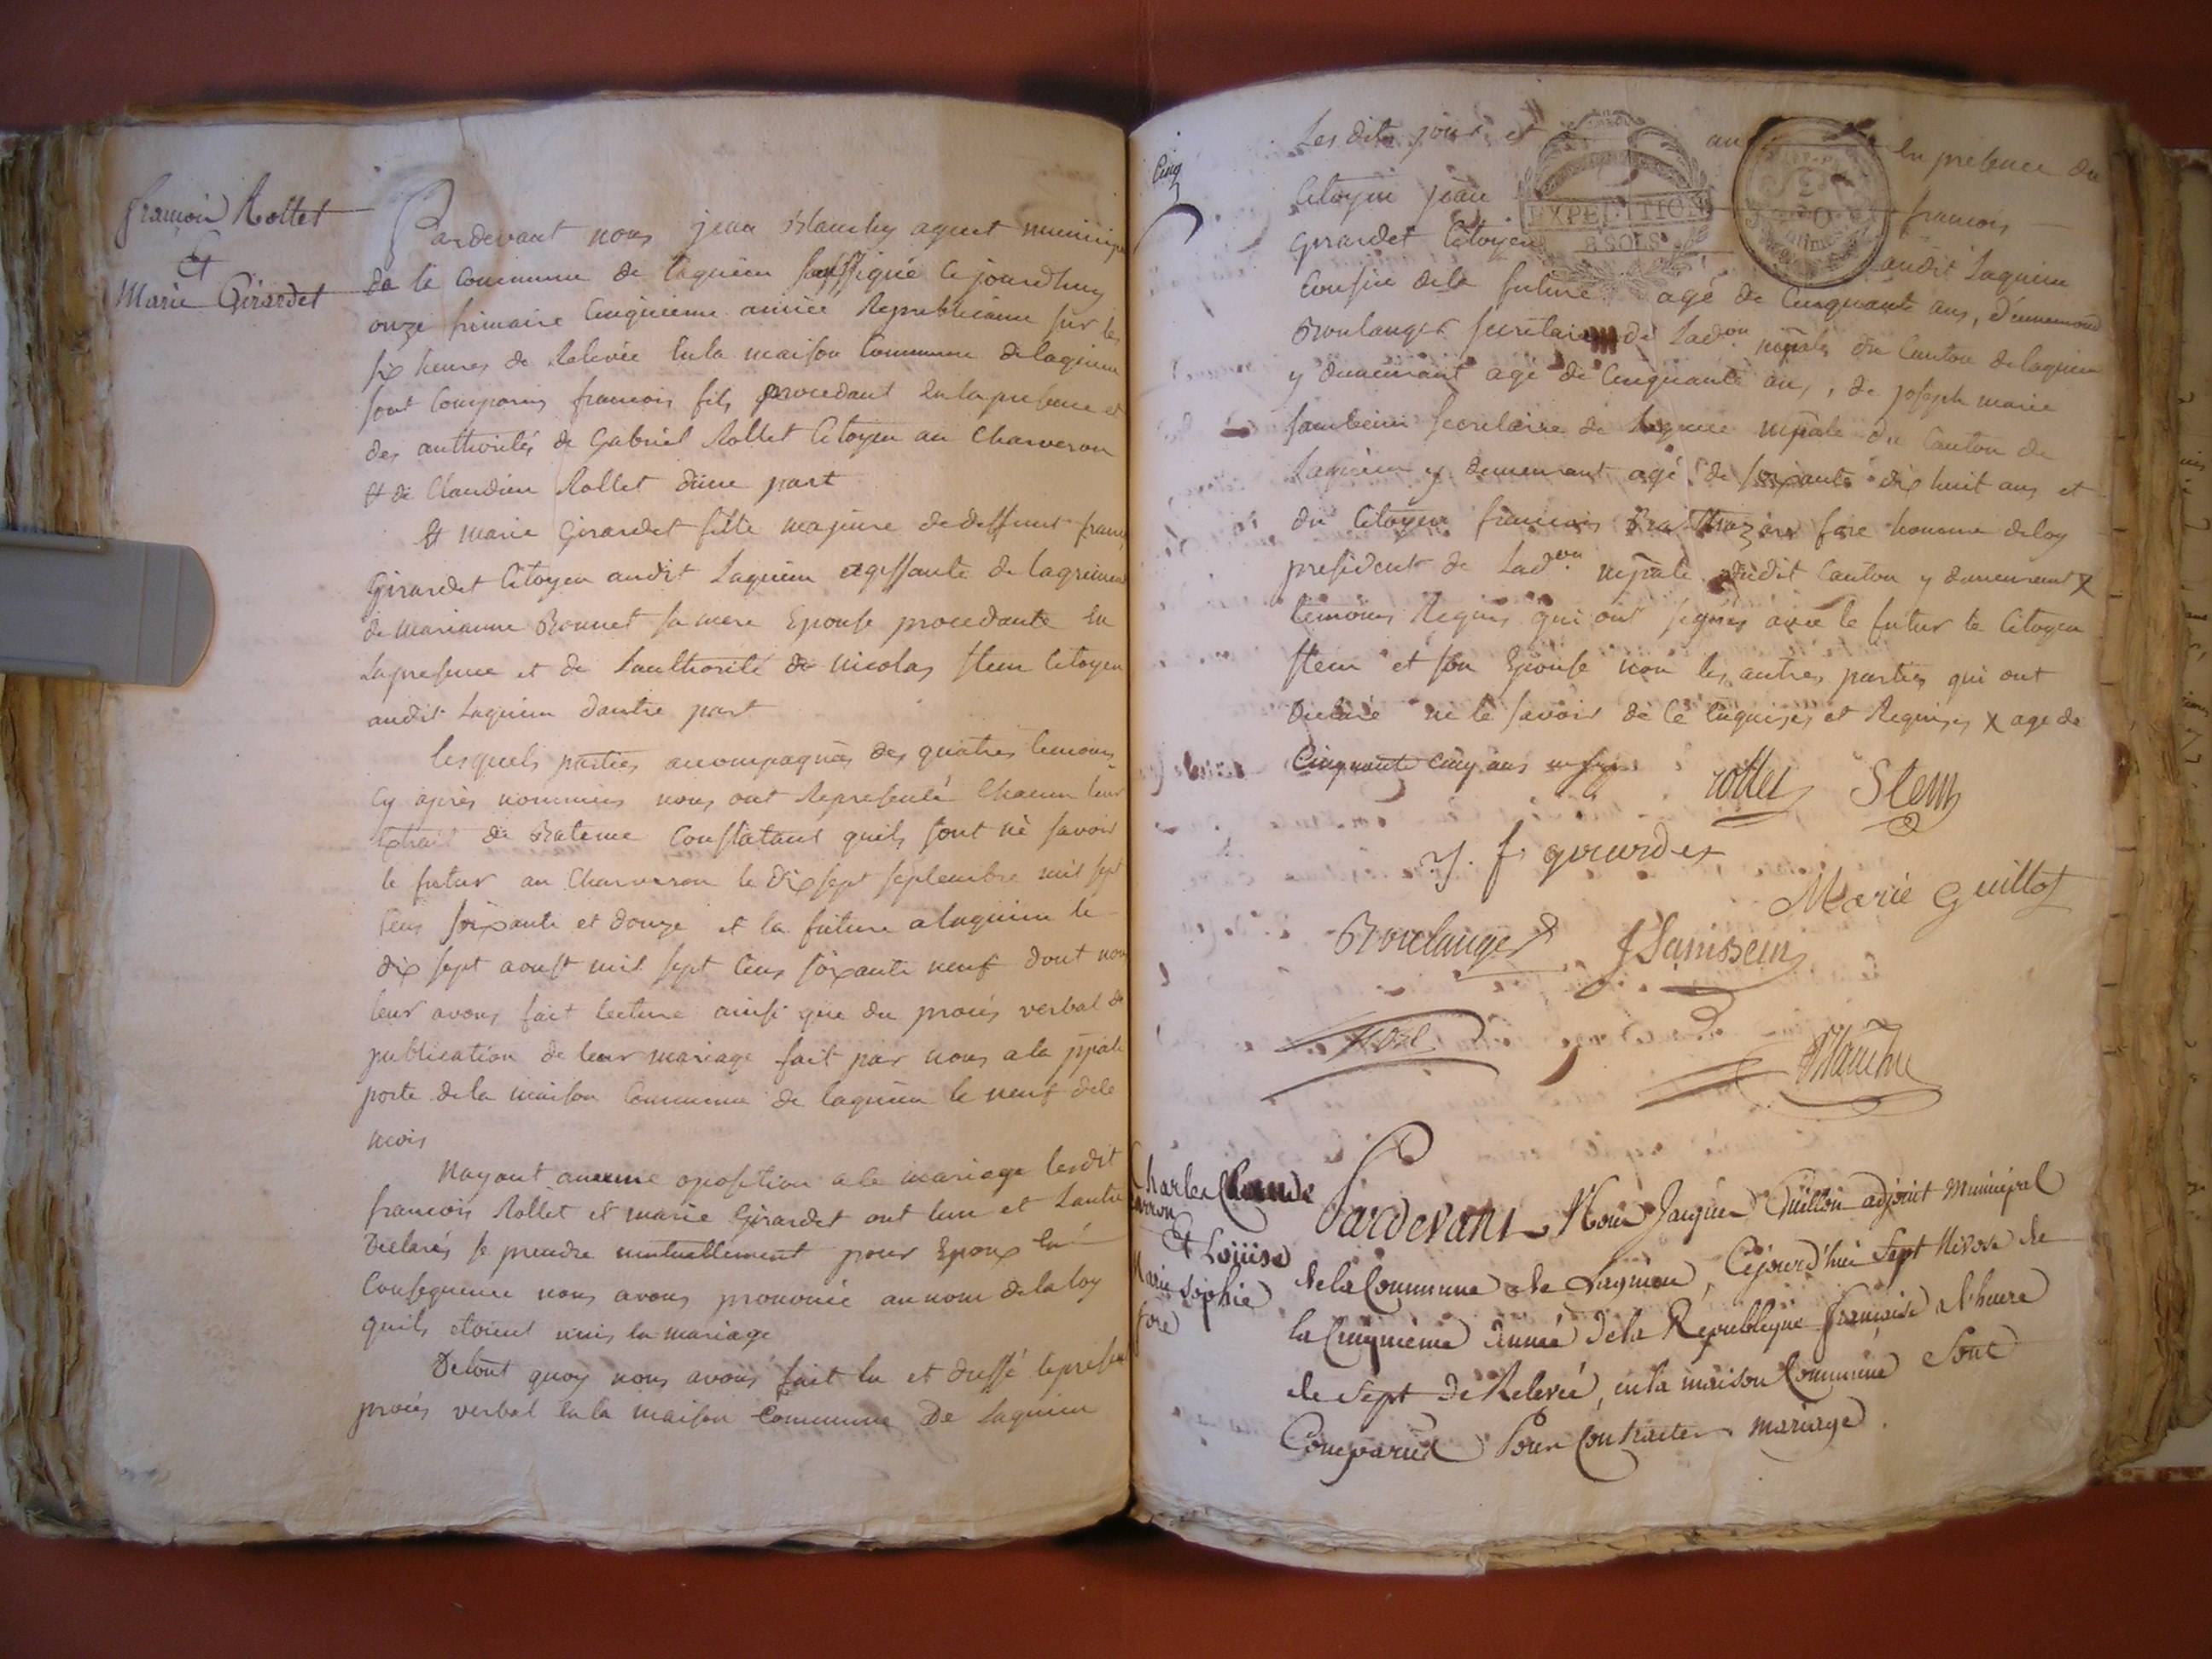 françois Rollet
Et
Marie Girardet
Pardevant nous jean Blanchy agent municip
de la Commune de lagnieu soussigné Ce jourdhuy
onze frimaire Cinquieme année Republicaine sur les
six heures de Relevée En la maison Commune de lagnieu
sont Comparus francois fils procedant En la presence et
des authorités de Gabriel Rollet Citoyen au Charveron
Et de Claudine Rollet d'une part
Et marie Girardet fille majeure de deffunt franc
Girardet Citoyen audit Lagnieu agissante de lagrément
de marianne Bonnet sa mere Epouse procedante En
La presence et de Lauthorité de nicolas Stein Citoyen
audit Lagnieu dautre part
Lesquels parties accompagnés des quatres temoins
Cy après nommés nous ont Representé Chacun leur
Extrait de Bateme Constatant quils sont né savoir
le futur au Charveron le dix sept septembre mil sept
Cens soixante et douze et la future a lagnieu le
dix sept aoust mil sept Cens soixante neuf dont nous
leur avons fait lecture ainsi que du procés verbal de
publication de leur mariage fait par nous a la ppale
porte de la maison Commune de lagnieu le neuf de Ce
mois
Nayant aucune oposition a Ce mariage lesdit
francois Rollet et marie Girardet ont lun et Lautre
Declarés se prendre mutuellement pour Epoux En
Consequence nous avons prononcé au nom de la loy
quils etoient unis En mariage
De tout quoy nous avons fait lu et dressé le presen
procés verbal En la maison Commune De Lagnieu
Cinq
Les dits jour et an En presence du
Citoyen jean francois
Girardet Citoyen audit Lagnieu
Cousin de la future agé de Cinquante ans, d'ennemond
Boulanger secretaire de Lad.on mpale du Canton de lagnieu
y demeurant agé de Cinquante ans, de joseph marie
secretaire de mpale du Canton de
Lagnieu y demeurant agé de soixante dix huit ans et
du Citoyen francois fore homme de loy
president de Lad.on mpale dudit Canton y demeurant x
temoins Requis qui ont signés avec le futur le Citoyen
Stein et son Epouse non les autres parties qui ont
Declaré ne le savoir de Ce Enquises et Requises x age de
Cinquante Cinq ans
rollet Stein
J. f. girardet
Marie Guillot
Boulanger
fore
Blanchy
EXPEDITION
8 SOLS
Charles Claude
Et Loüise
Marie Sophie
fore
Pardevant Nous Jacques Guillon adjoint Municipal
de la Commune de Lagnieu, Cejourd'hui Sept Nivose de
la Cinquieme année de la Republique française a l'heure
de Sept de Relevée, en la maison Commune Sont
Comparus Pour Contracter mariage.